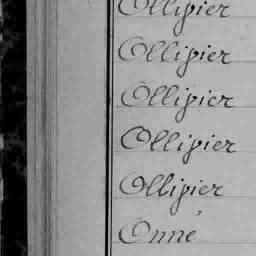 Ollivier
Ollivier
Ollivier
Ollivier
Ollivier
Onné